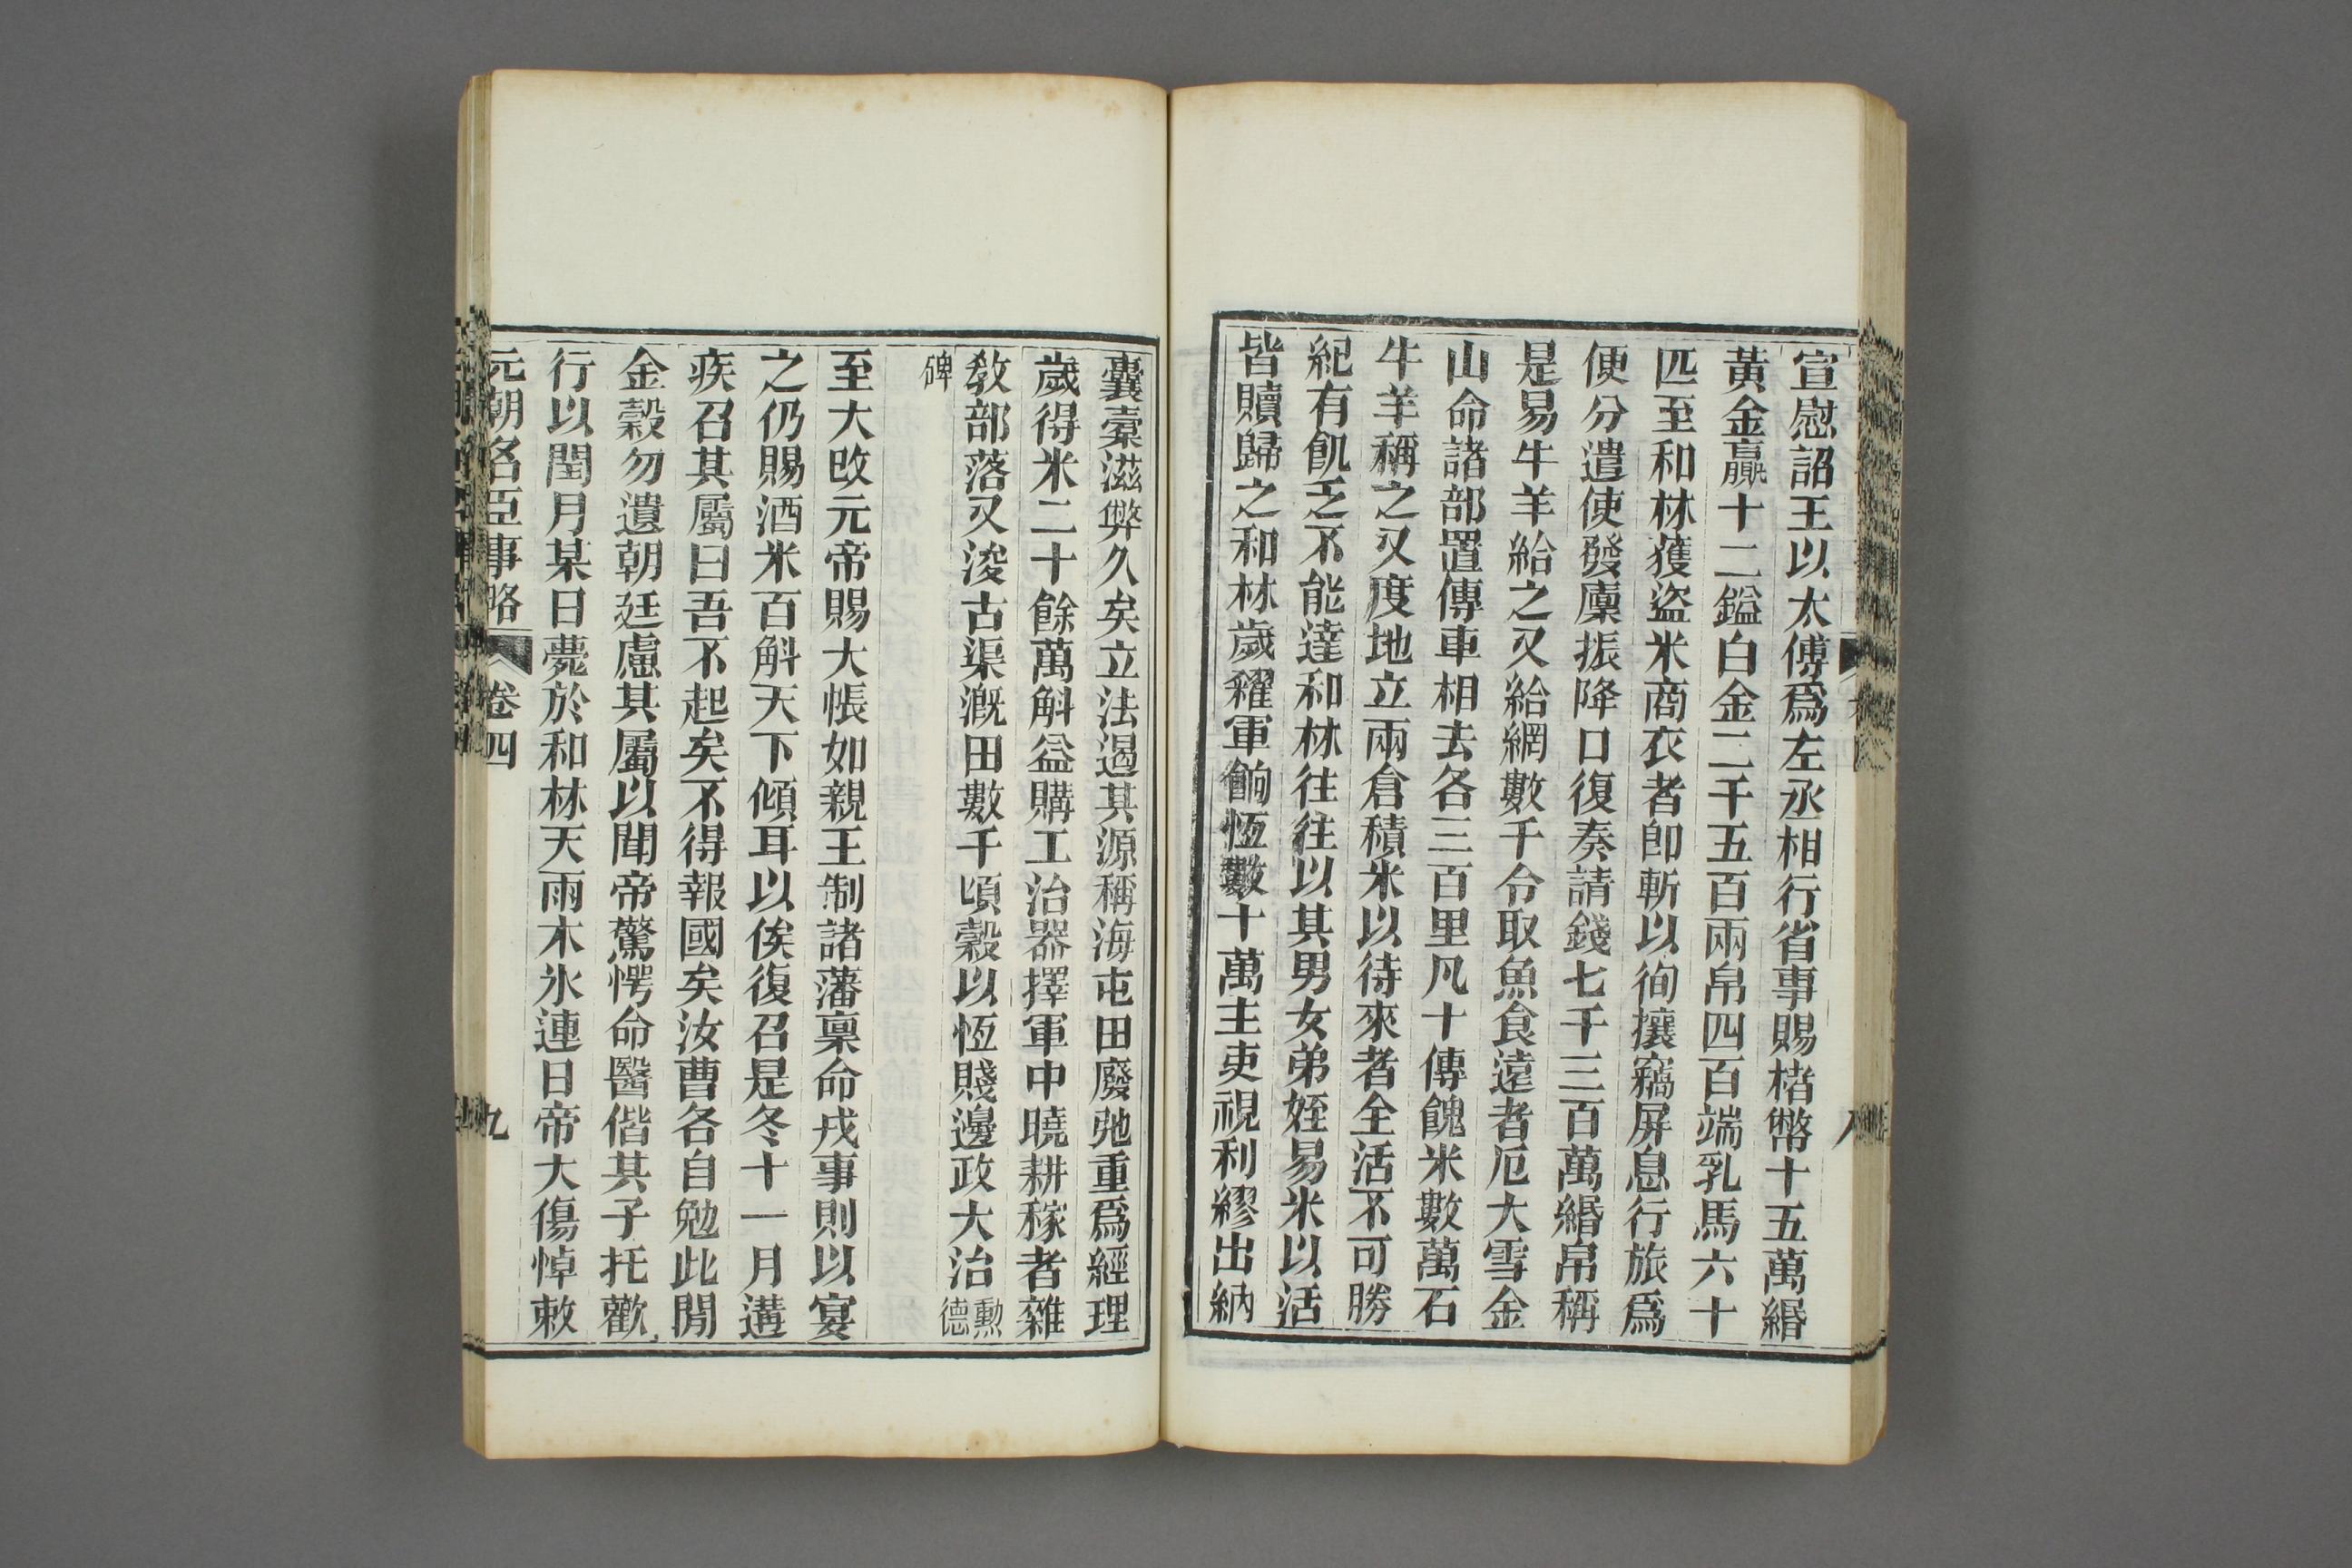 宣慰詔王以太傅爲左丞相行省事賜楮幣十五萬緡
黃金贏十二鎰白金二千五百兩帛四百端乳馬六十
匹至和林獲盜米商衣者卽斬以徇攘竊屏息行旅爲
便分遣使發廩振降口復奏請錢七千三百萬緡帛稱
是易牛羊給之又給網數千令取魚食遠者厄大雪金
山命諸部置傳車相去各三百里凡十傳餽米數萬石
牛羊稱之又度地立兩倉積米以待來者全活不可勝
紀有飢乏不能達和林往往以其男女弟姪易米以活
皆贖歸之和林歲糴軍餉恆數十萬主吏視利繆出納
囊橐滋弊久矣立法遏其源稱海屯田廢弛重爲經理
歲得米二十餘萬斛益購工治器擇軍中曉耕稼者雜
敎部落又浚古渠漑田數千頃穀以恆賤邊政大治勳德
碑
至大改元帝賜大帳如親王制諸藩稟命戎事則以宴
之仍賜酒米百斛天下傾耳以俟復召是冬十一月遘
疾召其屬曰吾不起矣不得報國矣汝曹各自勉此閒
金穀勿遺朝廷慮其屬以聞帝驚愕命醫偕其子托歡
行以閏月某日薨於和林天雨木氷連日帝大傷悼敕
元朝名臣事略 卷四 九